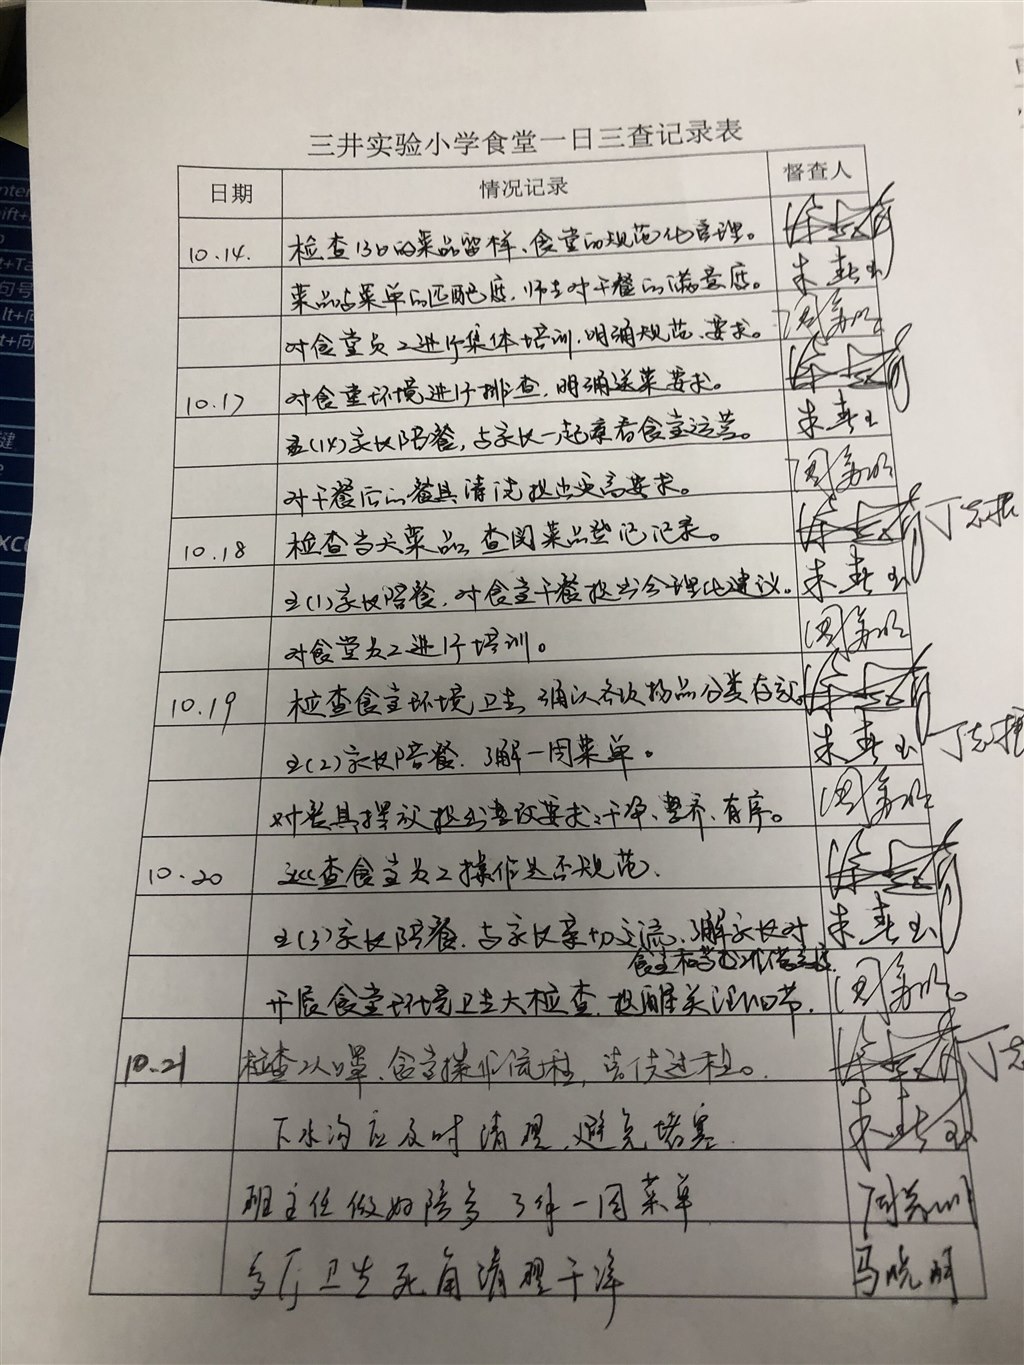 三井实验小学食堂一日三查记录表
日期 情况记录 督查人
10.14. 检查13日的菜品留样、食堂的规范化管理。
菜品与菜单的匹配度,师生对午餐的满意度。 朱春玉
对食堂员工进行集体培训,明确规范、要求。
10.17 对食堂环境进行排查,明确送菜要求。
五(14)家长陪餐,与家长一起查看食堂运营。 朱春玉
对午餐后的餐具清洗提出更高要求。
10.18 检查当天菜品,查阅菜品登记记录。 丁志根
五(1)家长陪餐,对食堂午餐提出合理化建议。 朱春玉
对食堂员工进行培训。
10.19 检查食堂环境卫生,确认各项物品分类存放。
五(2)家长陪餐,了解一周菜单。 朱春玉 丁志根
对餐具摆放提出整改要求:干净、整齐、有序。
10.20 巡查食堂员工操作是否规范、
五(3)家长陪餐,与家长亲切交流,了解家长对 朱春玉
食堂和
开展食堂环境卫生大检查,提醒关注细节。
10.21 检查口罩、食堂操作流程,
下水沟应及时清理,避免堵塞 朱春玉
班主任做好陪 了解一周菜单
厅卫生死角清理干净 马晓明